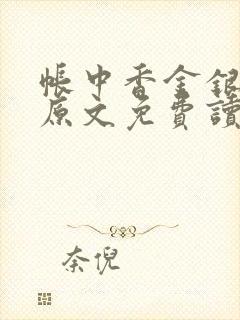 帳中香金銀
原文免費讀
奈倪